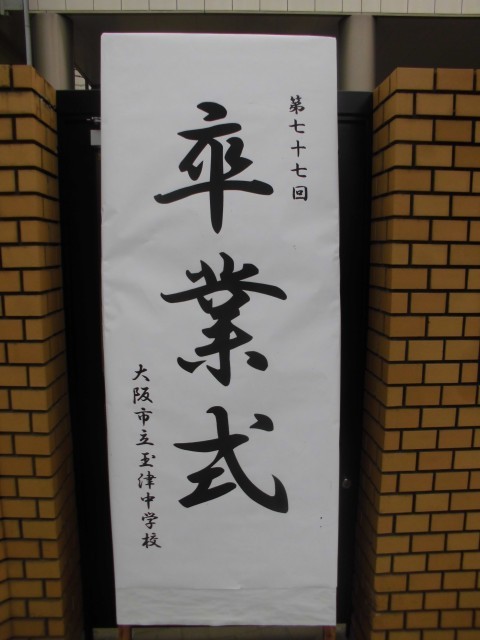 第七十七回
卒業式
大阪市立玉津中学校